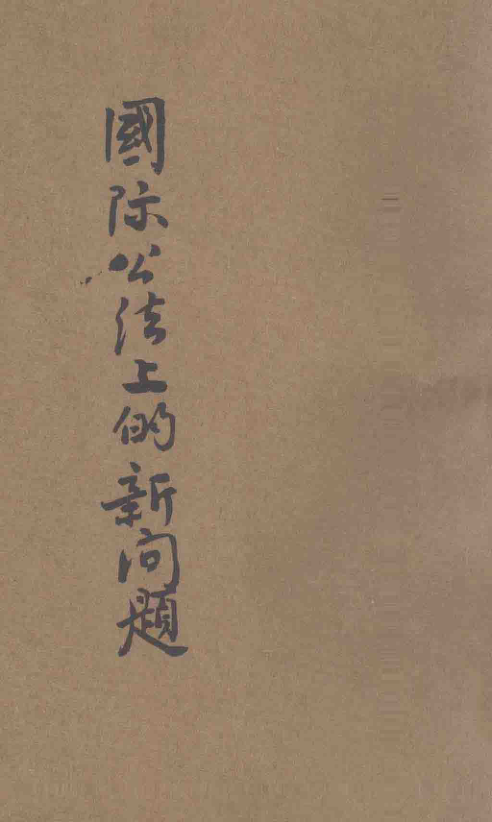 國际公法上的新问題